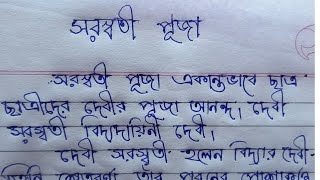 সরস্বতী পূজা
সরস্বতী পূজা একান্তভাবে ছাত্র-
ছাত্রীদের দেবীর পূজা আনন্দ। দেবী
সরস্বতী বিদ্যাদায়িনী দেবী।
দেবী সরস্বতী হলেন বিদ্যার দেবী-
তাঁর পরনের